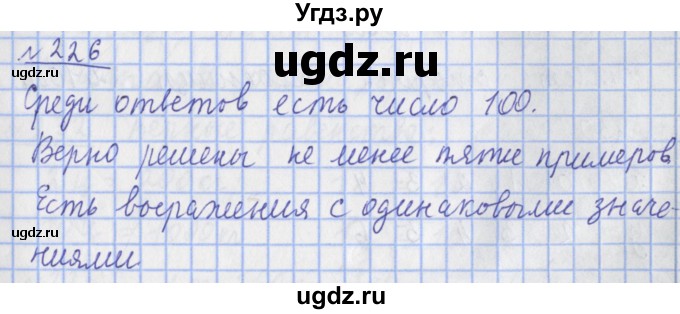 Угдз.ру
№ 226
ugdz.ru
ugdz.ru
ugdz.ru
Среди ответов есть число 100.
Верно решены не менее пяти примеров
ugdz.ru
ugdz.ru
Есть выражения с одинаковыми значе-
ugdz.ru
ниями
ugdz.ru